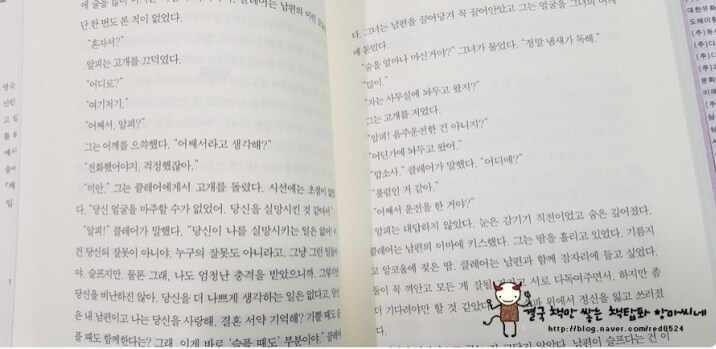 단 한 번도 본 적이 없었다.
"혼자서?"
알피는 고개를 끄덕였다.
"어디로?"
"여기저기."
"어째서, 알피?"
그는 어깨를 으쓱했다. "어째서라고 생각해?"
"전화했어야지, 걱정했잖아."
"미안." 그는 클레어에게서 고개를 돌렸다. 시선에는 초점이 없었
다. "당신 얼굴을 마주할 수가 없었어. 당신을 실망시킨 것 같아서."
"알피!" 클레어가 말했다. "당신이 나를 실망시키는 일은 없어!
건 당신의 잘못이 아니야. 누구의 잘못도 아니라고, 그냥 그런 일
야. 슬프지만. 물론 그래, 나도 엄청난 충격을 받았으니까. 그렇지만
당신을 비난하진 않아. 당신을 더 나쁘게 생각하는 일은 없다고. 당신
은 내 남편이고 나는 당신을 사랑해. 결혼 서약 기억해? 기쁠 때도
플 때도 함께한다는? 그래, 이게 바로 '슬플 때도' 부분이야."
다. 그녀는 남편을 끌어당겨 꼭 끌어안았고 그는 얼굴을 그녀의 어깨
에 묻었다.
"술을 얼마나 마신거야?" 그녀가 물었다. "정말 냄새가 독해."
"많이."
"차는 사무실에 놔두고 왔지?"
그는 고개를 저었다.
"알피! 음주운전한 건 아니지?"
"어딘가에 놔두고 왔어."
"맙소사." 클레어가 말했다. "어디에?"
"풀럼인 거 같아."
"어째서 운전을 한 거야?"
알피는 대답하지 않았다. 눈은 감기기 직전이었고 숨은 깊어졌다.
클레어는 남편의 이마에 키스했다. 그는 땀을 흘리고 있었다. 기름지
고 알코올에 젖은 땀. 클레어는 남편과 함께 잠자리에 들고 싶었다.
둘이 꼭 껴안고 모든 게 잘될 거라고 서로 다독여주면서. 하지만 좀
더 기다려야만 할 것 같았다. 위에서 정신을 잃고 쓰러졌
결국 책만 쌓는 책탑파 항마씨네
http://blog.naver.com/red0524